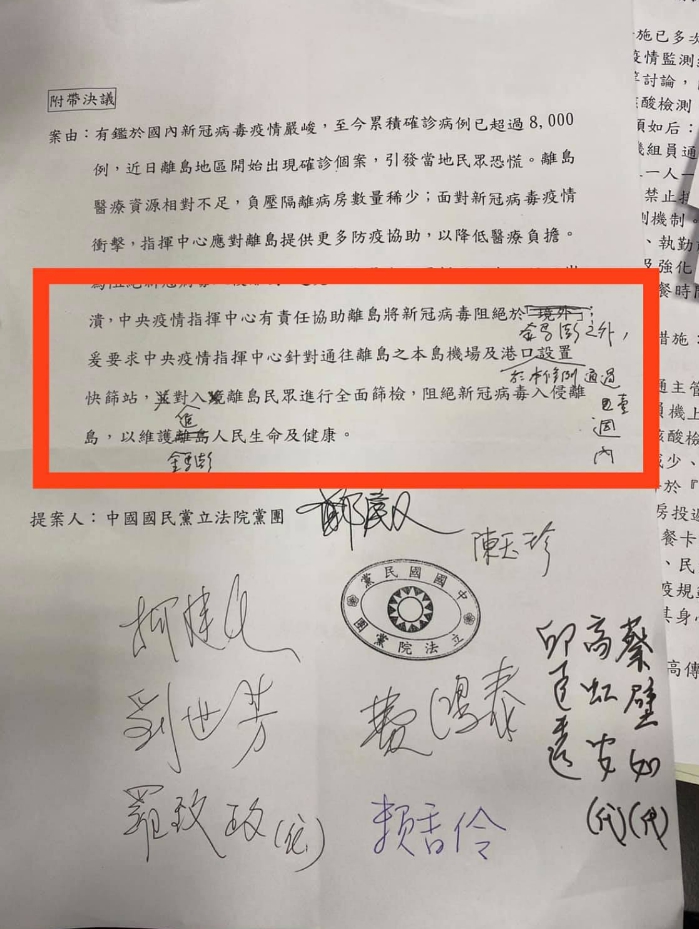 附帶決議
案由：有鑑於國內新冠病毒疫情嚴峻，至今累積確診病例已超過8,000
例，近日離島地區開始出現確診個案，引發當地民眾恐慌。離島
醫療資源相對不足，負壓隔離病房數量稀少；面對新冠病毒疫情
衝擊，指揮中心應對離島提供更多防疫協助，以降低醫療負擔。
為阻絕新冠病毒
潰，中央疫情指揮中心有責任協助離島將新冠病毒阻絕於「境外」；
金馬澎之外，
爰要求中央疫情指揮中心針對通往離島之本島機場及港口設置
於本條例通過
快篩站，並對入境離島民眾進行全面篩檢，阻絕新冠病毒入侵離
進
週
內
島，以維護離島人民生命及健康。
金馬澎
提案人：中國國民黨立法院黨團
陳玉珍
中國國民黨
立法院黨團
劉世芳
費鴻泰
羅致政(代)
賴香伶
邱臣遠
高虹安(代)
蔡壁如(代)
施已多次
疫情監測
討論，
酸檢測
如后：
組員通
一人一
禁止
制機制。
、執勤
及強化
餐時間
措施：
通主管
員機上
核酸檢
減少、
於『
房投遞
餐卡
、民
疫規
其身心
高傳